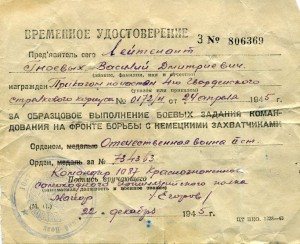 ВРЕМЕННОЕ УДОСТОВЕРЕНИЕ
З № 806369
Пред'явитель сего Лейтенант
Гноевых Василий Дмитриевич
(звание, фамилия, имя и отчество)
награжден Приказом по частям 4го Гвардейского
(указом или приказом)
стрелкового корпуса № 0172/н от 24 апреля 1945 г.
ЗА ОБРАЗЦОВОЕ ВЫПОЛНЕНИЕ БОЕВЫХ ЗАДАНИЙ КОМАН-
ДОВАНИЯ НА ФРОНТЕ БОРЬБЫ С НЕМЕЦКИМИ ЗАХВАТЧИКАМИ
Орденом, медалью Отечественная война II ст.
Орден, медаль за №
Командир 1097 Краснознаменного
Подпись вручающего
самоходного артиллерийского полка
Майор /Егоров/
(М. П.)
22 декабря 1945 г.